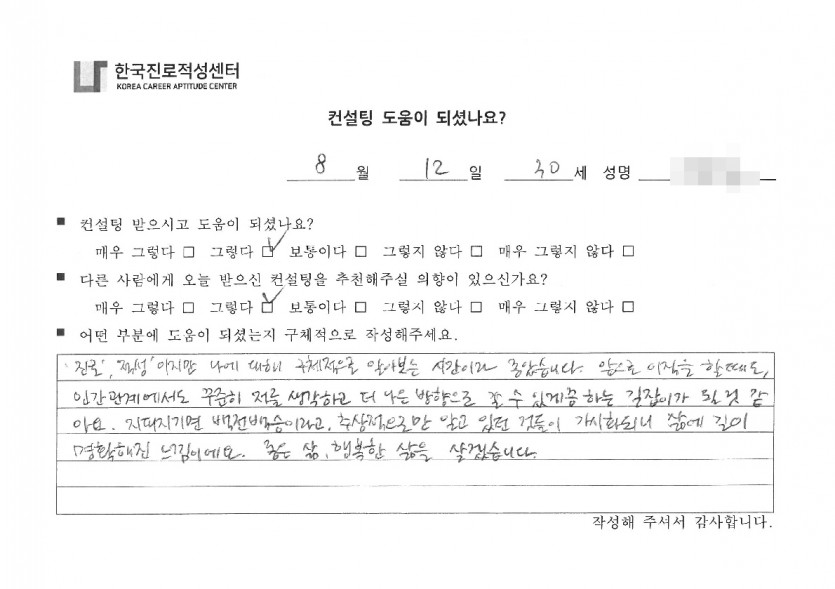 한국진로적성센터
KOREA CAREER APTITUDE CENTER
컨설팅 도움이 되셨나요?
8월 12일 30세 성명
■ 컨설팅 받으시고 도움이 되셨나요?
매우 그렇다 □ 그렇다 ☑ 보통이다 □ 그렇지 않다 □ 매우 그렇지 않다 □
■ 다른 사람에게 오늘 받으신 컨설팅을 추천해주실 의향이 있으신가요?
매우 그렇다 □ 그렇다 ☑ 보통이다 □ 그렇지 않다 □ 매우 그렇지 않다 □
■ 어떤 부분에 도움이 되였는지 구체적으로 작성해주세요.
'진로', '적성'이지만 나에 대해 구체적으로 알아보는 시간이라 좋았습니다. 앞으로 이직을 할때도,
인간관계에서도 꾸준히 저를 생각하고 더 나은 방향으로 갈 수 있게끔 하는 길잡이가 될 것 같
아요. 지피지기면 백전백승이라고, 추상적으로만 알고 있던 것들이 가시화되니 삶에 길이
명확해진 느낌이에요. 좋은 삶, 행복한 삶을 살겠습니다.
작성해 주셔서 감사합니다.